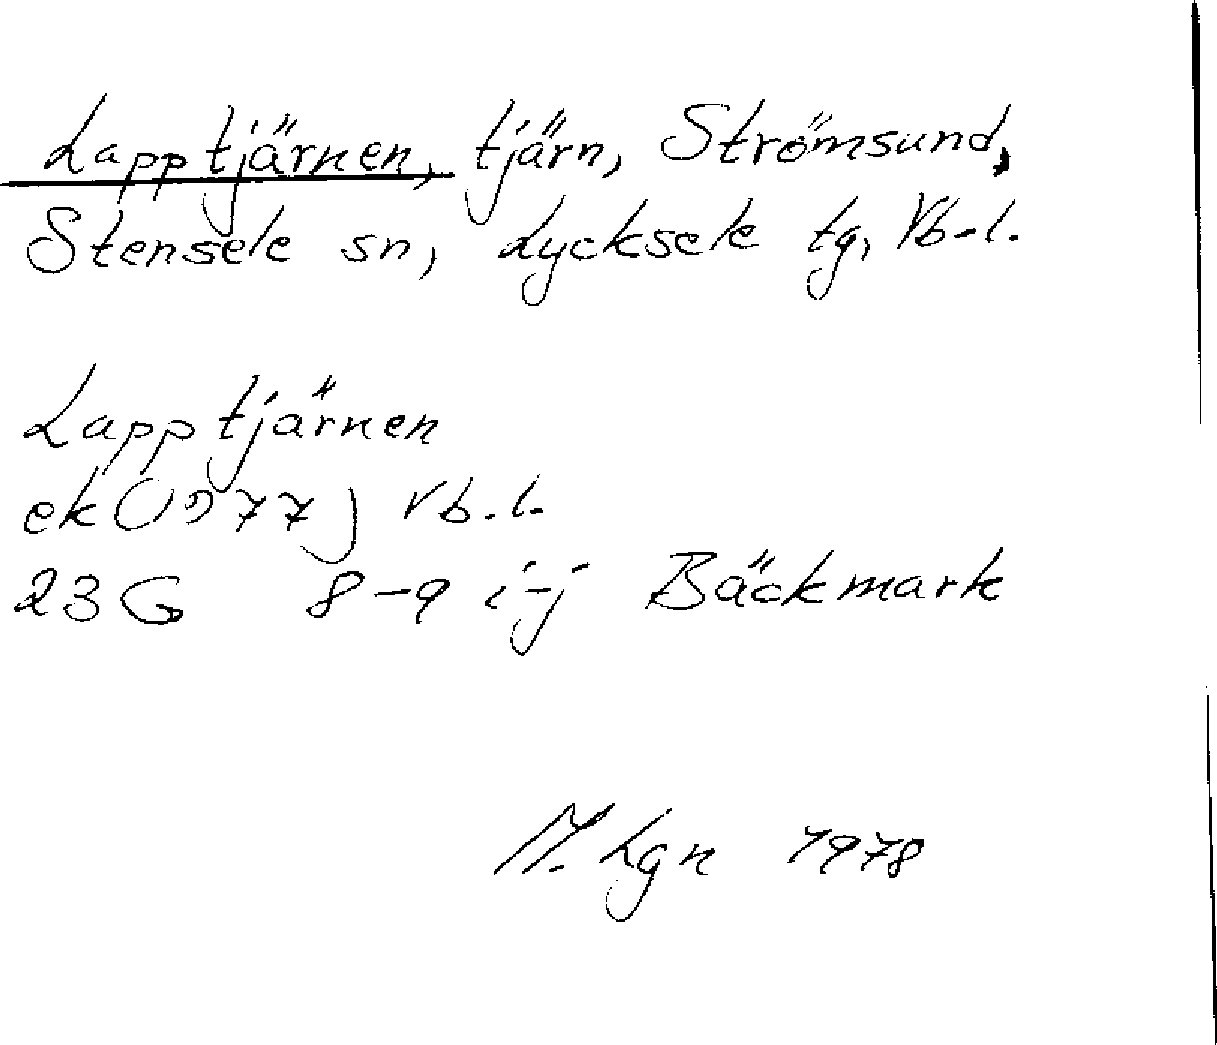 Lapptjärnen, tjärn, Strömsund,
Stensele sn, Lycksele tg, Vb.l.
Lapptjärnen
ek (1977) Vb.l.
23G 8-9 i-j Bäckmark
M. Lgn 1978